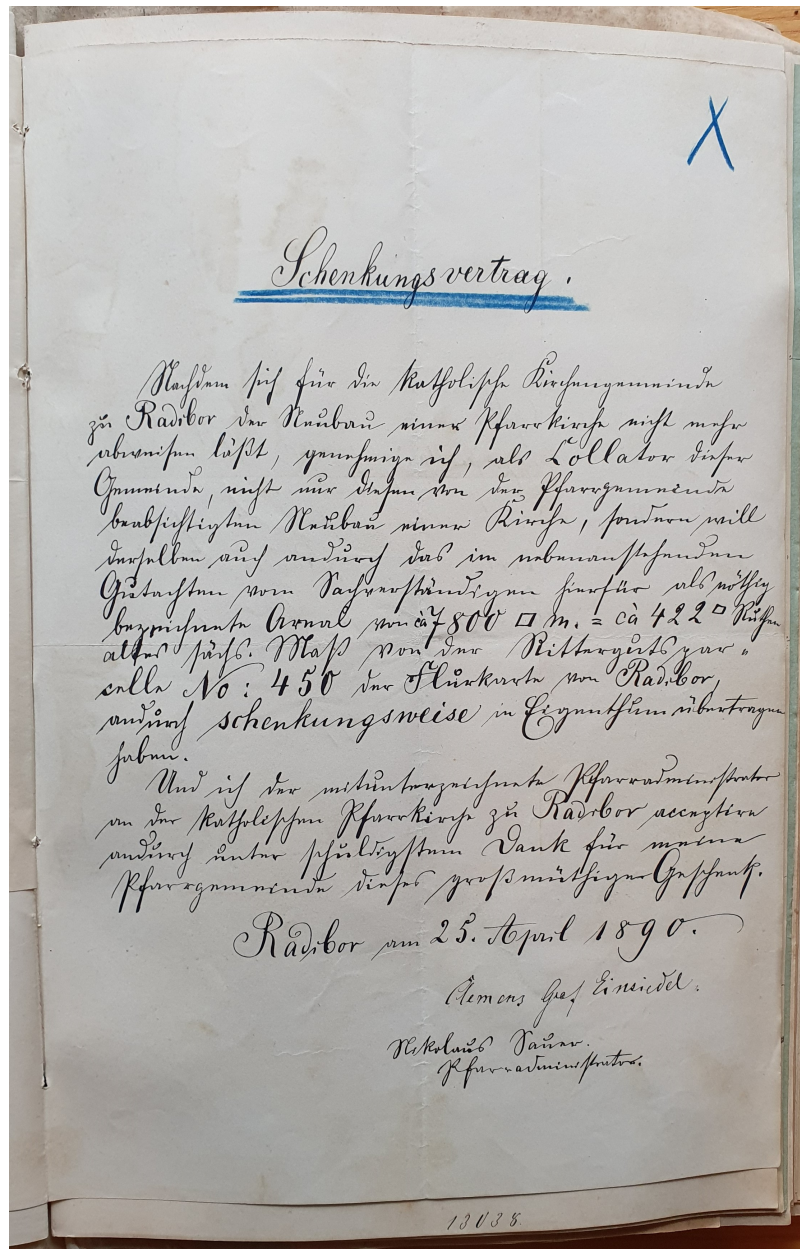 Schenkungsvertrag.
Nachdem sich für die katholische Kirchengemeinde
zu Radibor der Neubau einer Pfarrkirche nicht mehr
abweisen läßt, genehmige ich, als Collator dieser
Gemeinde, nicht nur diesen von der Pfarrgemeinde
beabsichtigten Neubau einer Kirche, sondern will
derselben auch andurch das im nebenanstehenden
Gutachten vom Sachverständigen hierfür als nöthig
bezeichnete Areal von cà 7800 □ m. = cà 422 □ Ruthen
altes sächs. Maß von der Rittergutspar=
celle No: 450 der Flurkarte von Radibor,
andurch schenkungsweise in Eigenthum übertragen
haben.
Und ich der mitunterzeichnete Pfarradministrator
an der katholischen Pfarrkirche zu Radibor acceptire
andurch unter schuldigstem Dank für meine
Pfarrgemeinde dieses großmüthige Geschenk.
Radibor am 25. April 1890.
Clemens Graf Einsiedel.
Nikolaus Sauer.
Pfarradministrator.